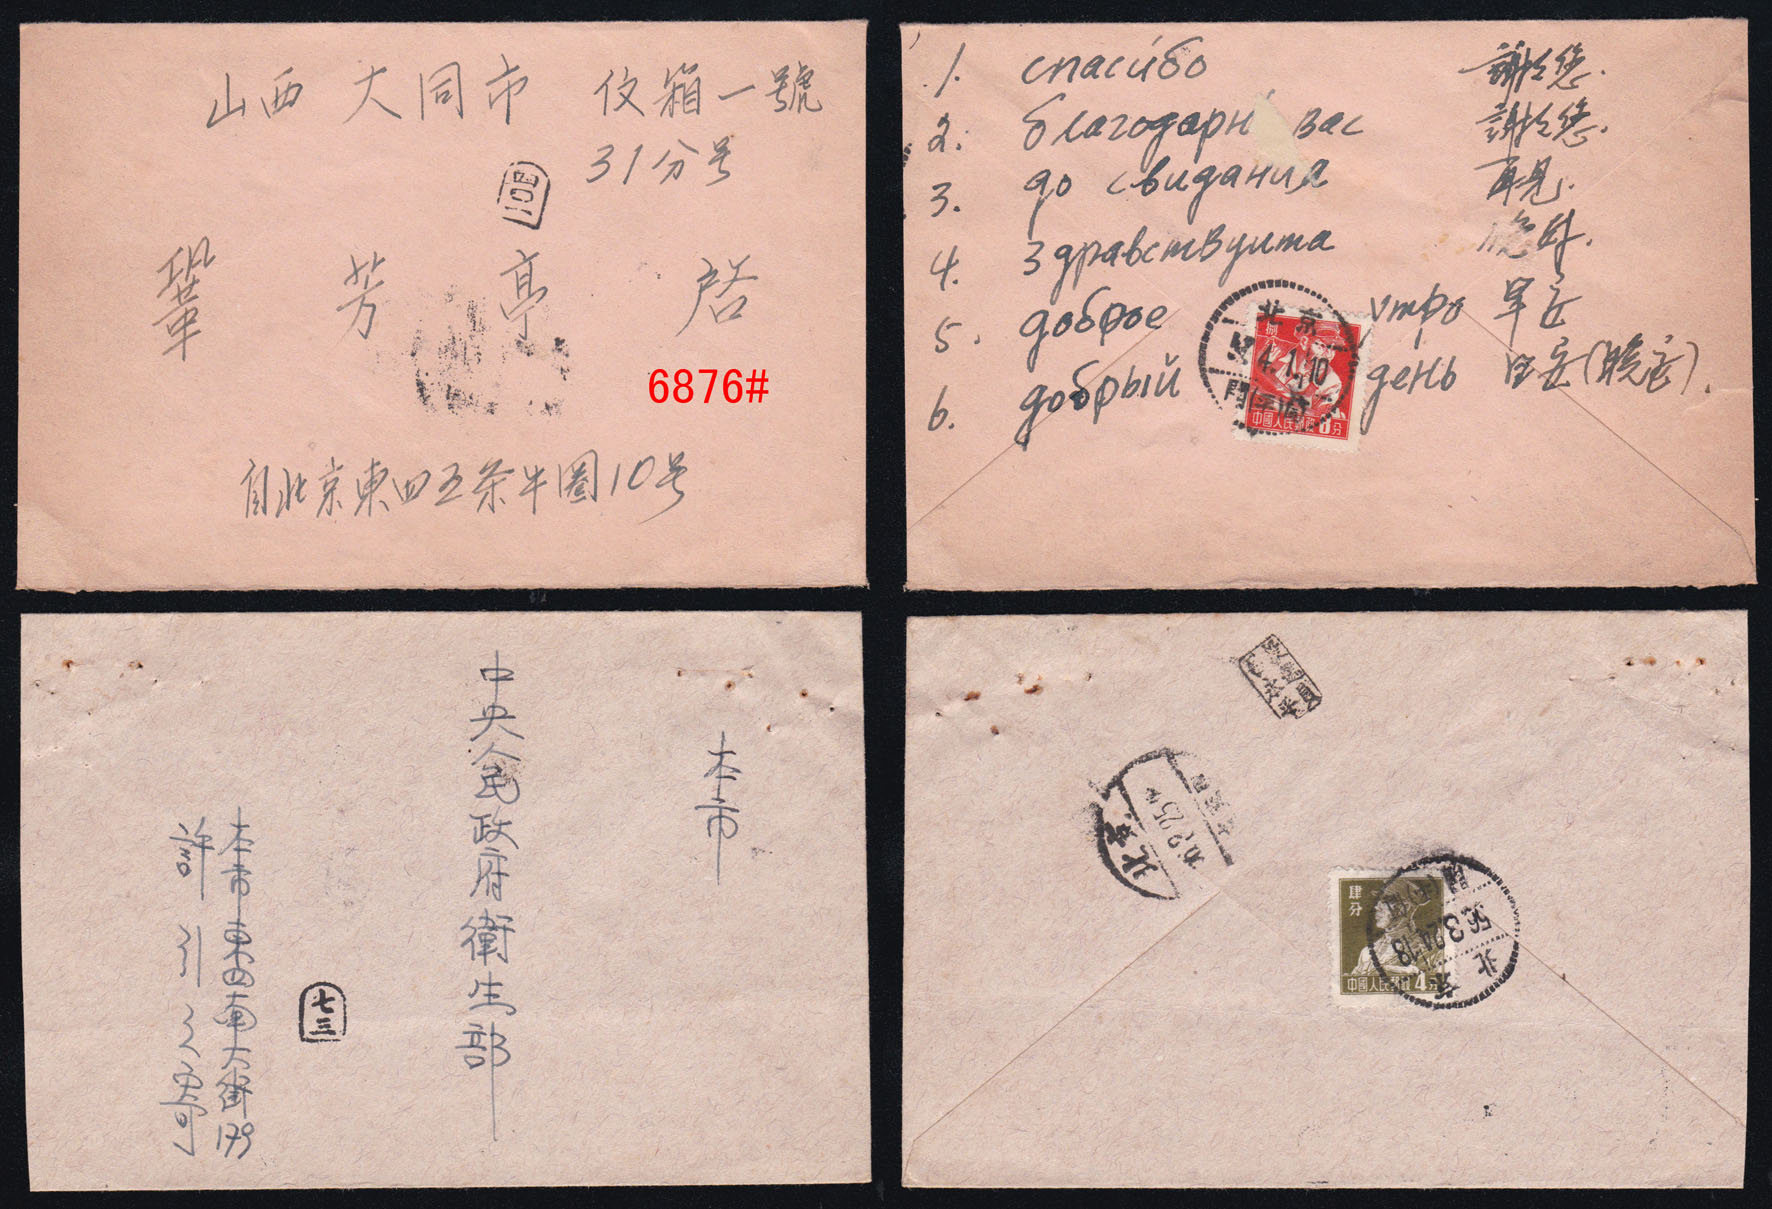 山西 大同市 信箱一號
31分号
四一
芳 亭 啓
6876#
自北京東四五条牛圈10号
1. спасибо 謝謝您.
2. благодарн вас 謝謝您.
3. до свидания 再見.
4. здравствуита
5. доброе утро 早安
6. добрый день 日安(晚安).
捌
北京
4.1.10
中國人民郵政8分
本市
中央人民政府衛生部
本市東四南大街179
許
七三
北京
56.3.25
肆分
中國人民郵政4分
56.3.24.18
北京